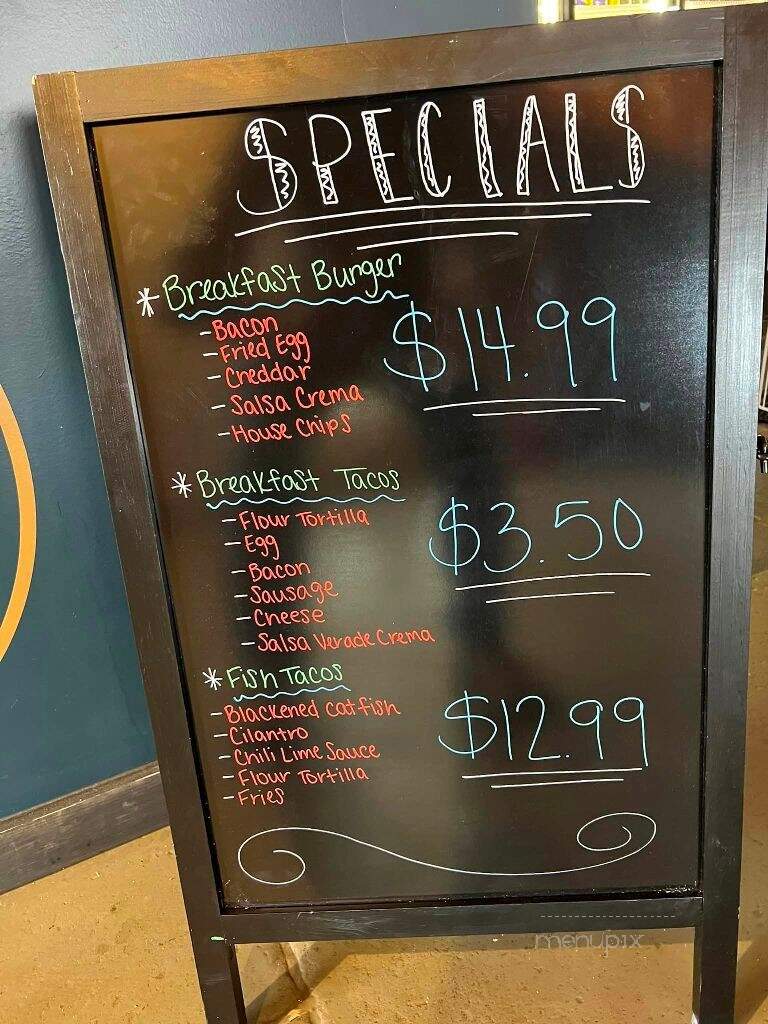 SPECIALS
* Breakfast Burger
- Bacon
- Fried Egg
- Cheddar
- Salsa Crema
- House Chips
$14.99
* Breakfast Tacos
- Flour Tortilla
- Egg
- Bacon
- Sausage
- Cheese
- Salsa Verade Crema
$3.50
* Fish Tacos
- Blackened catfish
- Cilantro
- Chili Lime Sauce
- Flour Tortilla
- Fries
$12.99
menupix